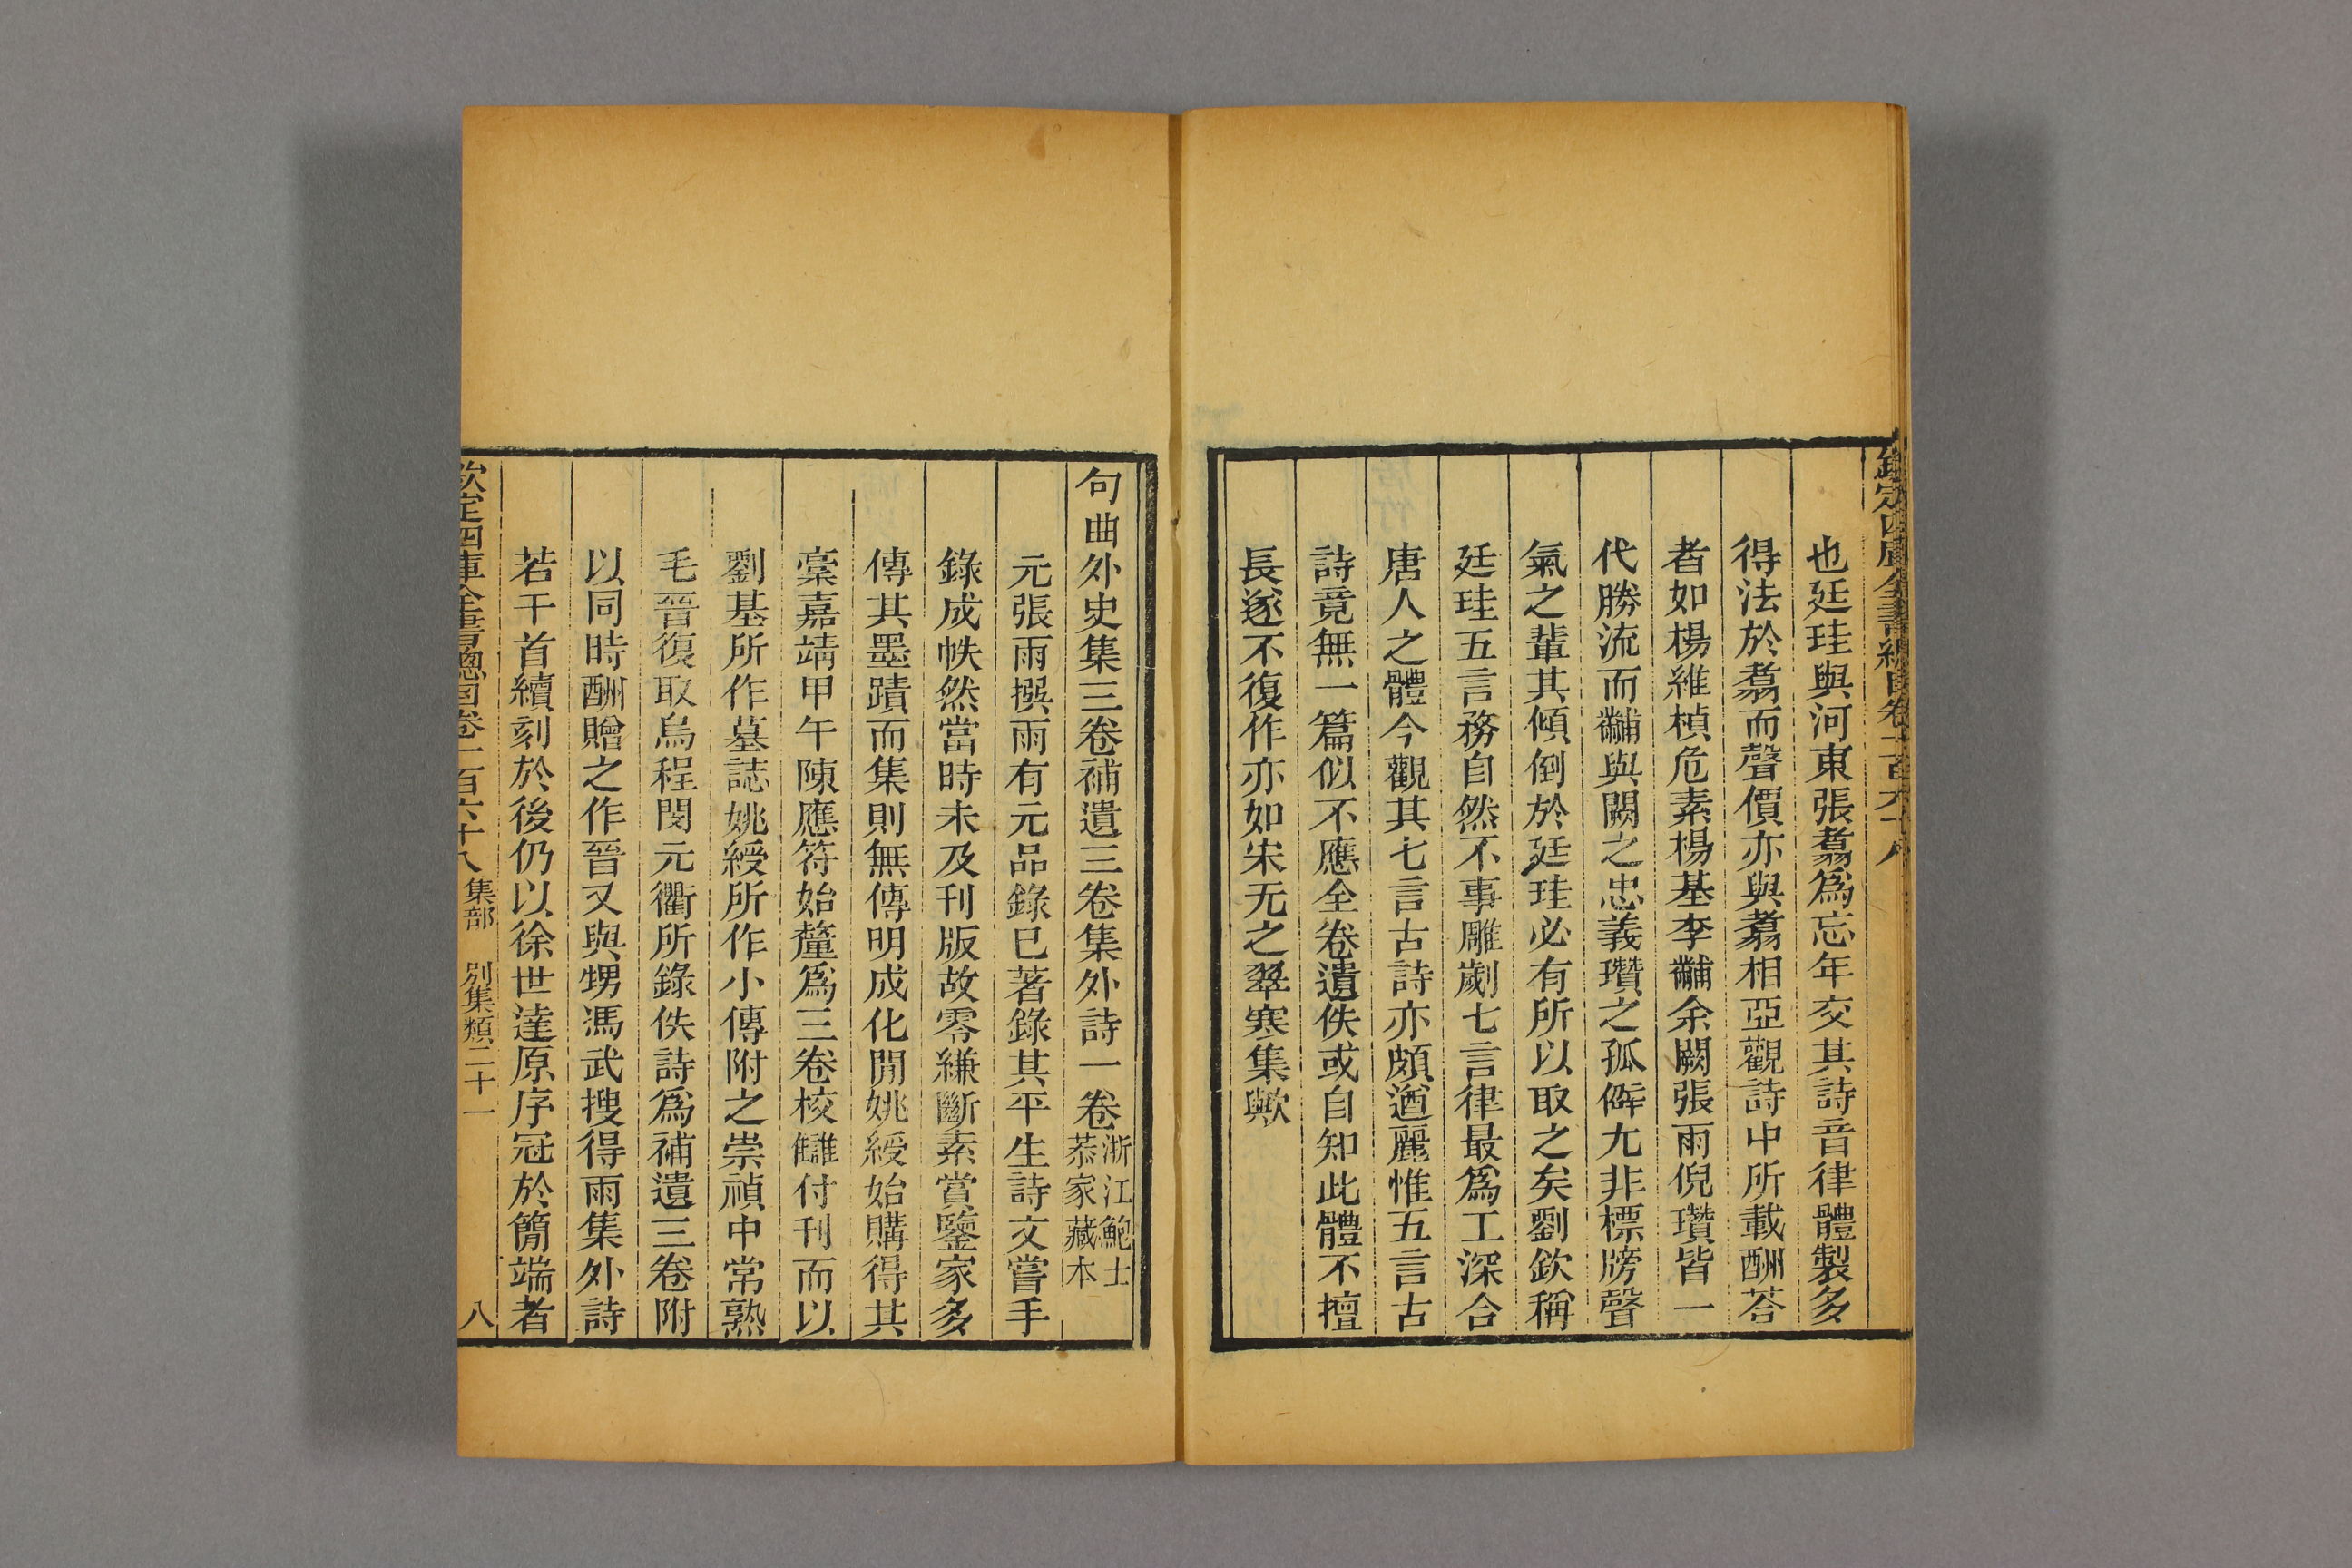 欽定四庫全書總目卷一百六十八
也廷珪與河東張翥爲忘年交其詩音律體製多
得法於翥而聲價亦與翥相亞觀詩中所載酬荅
者如楊維楨危素楊基李黼余闕張雨倪瓚皆一
代勝流而黼與闕之忠義瓚之孤僻尤非標牓聲
氣之輩其傾倒於廷珪必有所以取之矣劉欽稱
廷珪五言務自然不事雕劌七言律最爲工深合
唐人之體今觀其七言古詩亦頗遒麗惟五言古
詩竟無一篇似不應全卷遺佚或自知此體不擅
長遂不復作亦如宋无之翠寒集歟
句曲外史集三卷補遺三卷集外詩一卷浙江鮑士恭家藏本
元張雨撰雨有元品錄已著錄其平生詩文嘗手
錄成帙然當時未及刊版故零縑斷素賞鑒家多
傳其墨蹟而集則無傳明成化閒姚綬始購得其
稾嘉靖甲午陳應符始釐爲三卷校讎付刊而以
劉基所作墓誌姚綬所作小傳附之崇禎中常熟
毛晉復取烏程閔元衢所錄佚詩爲補遺三卷附
以同時酬贈之作晉又與甥馮武搜得雨集外詩
若干首續刻於後仍以徐世達原序冠於簡端者
欽定四庫全書總目卷一百六十八 集部 別集類二十一 八